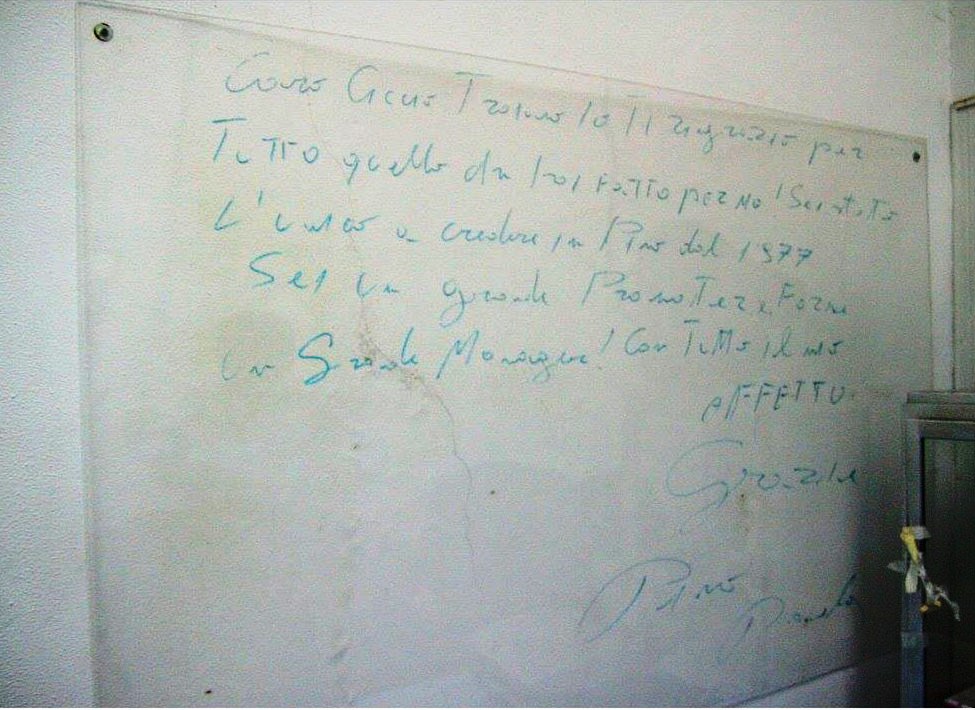 Caro Ciccio Troiano Io Ti ringrazio per
Tutto quello che hai fatto per me! Sei stato
L'unico a credere in Pino dal 1977
Sei un grande Promoter e Forse
un Grande Manager! Con Tutto il mio
AFFETTO
Grazie
Pino Daniele